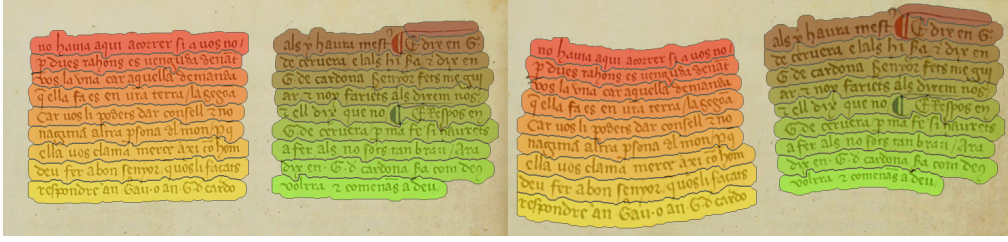 no hauia aqui acorrer si a vos no /
p dues rahons es uenguda denāt
vos la vna car aquella demanda
q̄ ella fa es en vr̄a terra / la segōa
Car vos li podets dar consell z no
naguna altra psona del mon ꝑ q̄
ella vos clama merce axi co hom
deu fer a bon senyor. q̄ uos li façats
respondre an Gau o an. G. d cardo
als y haura mest̄ E dix en G.
de ceruera elals hi fia z dix en
G de cardona Senyor fets me guj
ar z nos fariets als direm nos
z ell dix que no E Respos en
G. de ceruera ꝑ ma fe si haurets
a fer als no sots tan brau / Ara
dix en. G. d cardona fia com deu
volrra z comenas a deu.
no hauia aqui acorrer si a vos no /
p dues rahons es uenguda denāt
vos la vna car aquella demanda
q̄ ella fa es en vr̄a terra / la segōa
Car vos li podets dar consell z no
naguna altra psona del mon ꝑ q̄
ella vos clama merce axi co hom
deu fer a bon senyor. q̄ uos li façats
respondre an Gau o an. G. d cardo
als y haura mest̄ E dix en G.
de ceruera elals hi fia z dix en
G de cardona Senyor fets me guj
ar z nos fariets als direm nos
z ell dix que no E Respos en
G. de ceruera ꝑ ma fe si haurets
a fer als no sots tan brau / Ara
dix en. G. d cardona fia com deu
volrra z comenas a deu.